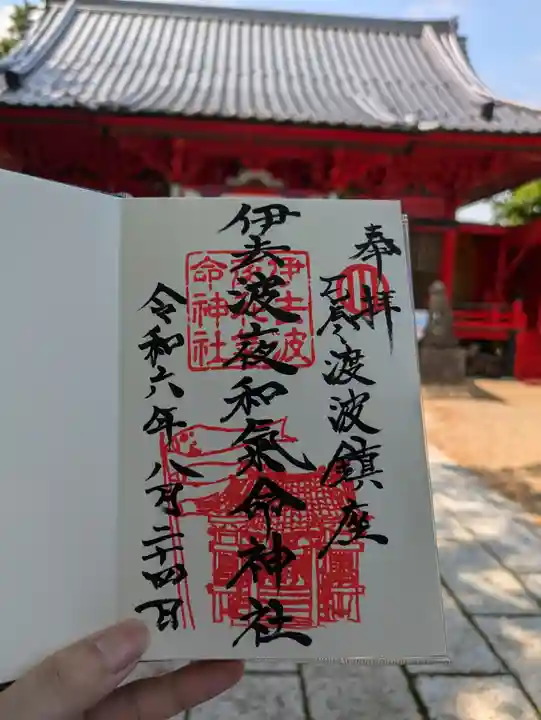 奉拝
渡波鎮座
伊去波夜和氣命神社
伊去波
命神社
令和六年八月二十四日